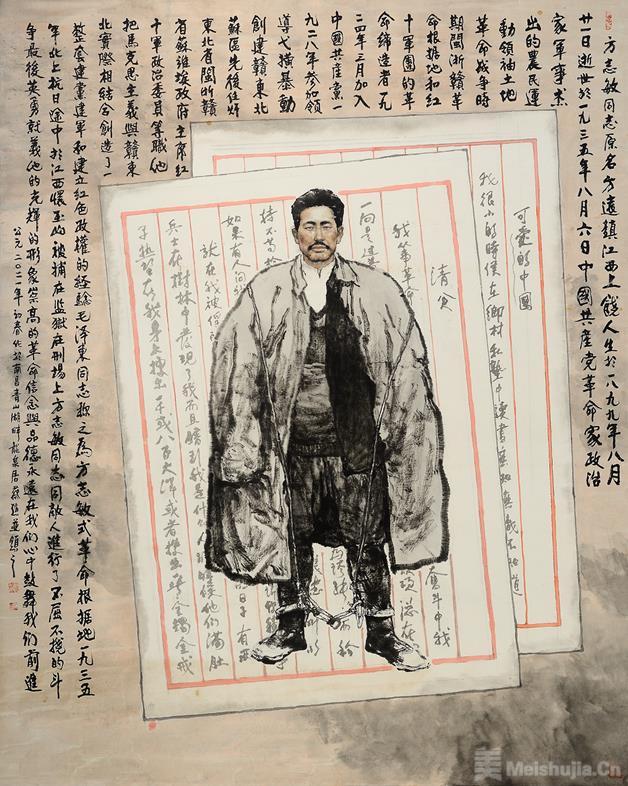 方志敏同志原名方遠鎮江西上饒人生於一八九九年八月
廿一日逝世於一九三五年八月六日中國共產党革命家政治
家軍事
出的農民運
動領袖土地
革命戰争時
期閩浙贛革
命根据地和紅
十軍團的革
命缔造者一九
二四年三月加入
中國共產黨一
九二八年参加領
導弋横暴動
創建贛東北
蘇區先後任
東北省閩浙贛
省蘇維埃政府主席紅
十軍政治委員等職他
把馬克思主義與贛東
北實際相结合創造了一
整套建黨建軍和建立紅色政權的经验毛泽東同志称之為方志敏式革命根据地一九三五
年北上抗日途中於江西懷玉山被捕在监狱在刑場上方志敏同志同敵人進行了不屈不挠的斗
争最後英勇就義他的光輝的形象崇高的革命信念與品德永遠在我們心中鼓舞我們前進
公元二〇二一年初春作於南昌青山湖畔
可愛的中國
我很小的時候在鄉村私塾中讀書無知無識不知道
清貧
我從事革命
奮斗中我
一向是过着
持不苟
如果有人问
就在我被俘
兵士在樹林中發現了我而且猜到我是什
手熱望在我身上搜出一千或八百大洋或者搜出一些金鐲金戒
美 Meishujia.Cn